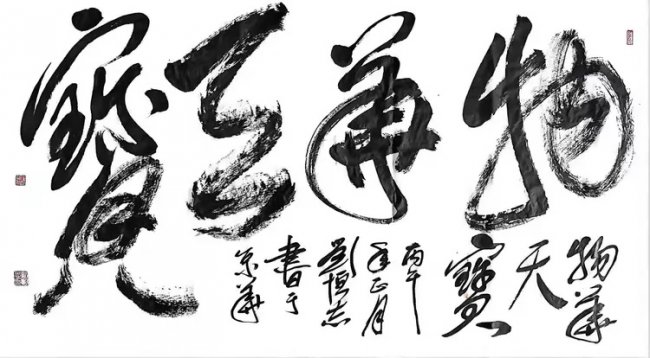 物華天寶
物華
天
寶
丙午
年正月
劉恒志
書于
京華